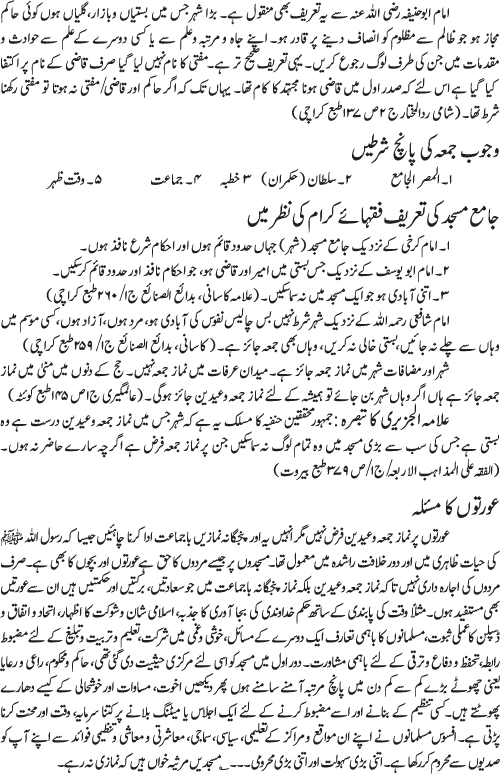 امام ابوحنیفہ رضی اللہ عنہ سے یہ تعریف بھی منقول ہے۔ بڑا شہر جس میں بستیاں و بازار، گلیاں ہوں کوئی حاکم
مجاز ہو جو ظالم سے مظلوم کو انصاف دینے پر قادر ہو۔ اپنے جاہ و مرتبہ و علم سے یا کسی دوسرے کے علم سے حوادث و
مقدمات میں جن کی طرف لوگ رجوع کریں۔ یہی تعریف صحیح تر ہے۔ مفتی کا نام نہیں لیا گیا صرف قاضی کے نام پر اکتفا
کیا گیا ہے اس لئے کہ صدر اول میں قاضی ہونا مجتہد کا کام تھا۔ یہاں تک کہ اگر حاکم اور قاضی/مفتی نہ ہوتا تو مفتی رکھنا
شرط تھا۔ (شامی ردالمختار ج ۲ ص ۱۳۷ طبع کراچی)
وجوب جمعہ کی پانچ شرطیں
۱۔ المصر الجامع ۲۔ سلطان (حکمران) ۳ خطبہ ۴۔ جماعت ۵۔ وقت ظہر
جامع مسجد کی تعریف فقہائے کرام کی نظر میں
۱۔ امام کرخی کے نزدیک جامع مسجد (شہر) جہاں حدود قائم ہوں اور احکام شرع نافذ ہوں۔
۲۔ امام ابو یوسف کے نزدیک جس بستی میں امیر اور قاضی ہو، جو احکام نافذ اور حدود قائم کرسکیں۔
۳۔ اتنی آبادی ہو جو ایک مسجد میں نہ سماسکیں۔ (علامہ کاسانی، بدائع الصنائع ج۱/ ۲۶۰ طبع کراچی)
امام شافعی رحمہ اللہ کے نزدیک شہر شرط نہیں بس چالیس نفوس کی آبادی ہو، مرد ہوں، آزاد ہوں، کسی موسم میں
وہاں سے چلے نہ جائیں، بستی خالی نہ کریں، وہاں بھی جمعہ جائز ہے۔ (کاسانی، بدائع الصنائع ج۱/ ۲۵۹ طبع کراچی)
شہر اور مضافات شہر میں نماز جمعہ جائز ہے۔ میدان عرفات میں نماز جمعہ نہیں۔ حج کے دنوں میں منٰی میں نماز
جمعہ جائز ہے ہاں اگر وہاں شہر بن جائے تو ہمیشہ کے لئے نماز جمعہ و عیدین جائز ہوگی۔ (عالمگیری ج۱ ص ۱۴۵ طبع کوئٹہ)
علامہ الجزیری کا تبصرہ: جمہور محققین حنفیہ کا مسلک یہ ہے کہ شہر جس میں نماز جمعہ و عیدین درست ہے وہ
بستی ہے جس کی سب سے بڑی مسجد میں وہ تمام لوگ نہ سماسکیں جن پر نماز جمعہ فرض ہے اگرچہ سارے حاضر نہ ہوں۔
(الفقہ علی المذاہب الاربعہ/ ج۱/ ص ۳۷۹ طبع بیروت)
عورتوں کا مسئلہ
عورتوں پر نماز جمعہ و عیدین فرض نہیں مگر انہیں یہ اور پنجگانہ نمازیں باجماعت ادا کرنا چاہئیں جیسا کہ رسول اللہ ﷺ
کی حیات ظاہری میں اور دور خلافت راشدہ میں معمول تھا۔ مسجدوں پر جیسے مردوں کا حق ہے عورتوں اور بچوں کا بھی ہے۔ صرف
مردوں کی اجارہ داری نہیں تاکہ نماز جمعہ و عیدین بلکہ نماز پنجگانہ باجماعت میں جو سعادتیں، برکتیں اور حکمتیں ہیں ان سے عورتیں
بھی مستفید ہوں۔ مثلاً وقت کی پابندی کے ساتھ حکم خداوندی کی بجا آوری کا جذبہ، اسلامی شان و شوکت کا اظہار، اتحاد و اتفاق و
ڈسپلن کا عملی ثبوت، مسلمانوں کا باہمی تعارف ایک دوسرے کے مسائل، خوشی و غمی میں شرکت، تعلیم و تربیت و تبلیغ کے لئے مضبوط
رابطہ، تحفظ و دفاع و ترقی کے لئے باہمی مشاورت۔ دور اول میں مسجد کو اسی لئے مرکزی حیثیت دی گئی تھی، حاکم و محکوم، راعی و رعایا
یعنی چھوٹے بڑے کم سے کم دن میں پانچ مرتبہ آمنے سامنے ہوں پھر دیکھیں اخوت، مساوات اور خوشحالی کے کیسے دھارے
پھوٹتے ہیں۔ کسی تنظیم کے بنانے اور اسے مضبوط کرنے کے لئے ایک اجلاس یا میٹنگ بلانے پر کتنا سرمایہ، وقت اور محنت کرنا
پڑتی ہے۔ افسوس مسلمانوں نے اپنے ان مواقع و مراکز کے تعلیمی، سیاسی، سماجی، معاشرتی و معاشی و تنظیمی فوائد سے اپنے آپ کو
صدیوں سے محروم کر رکھا ہے۔ اتنی بڑی سہولت اور اتنی بڑی محرومی۔۔۔ مسجدیں مرثیہ خواں ہیں کہ نمازی نہ رہے۔